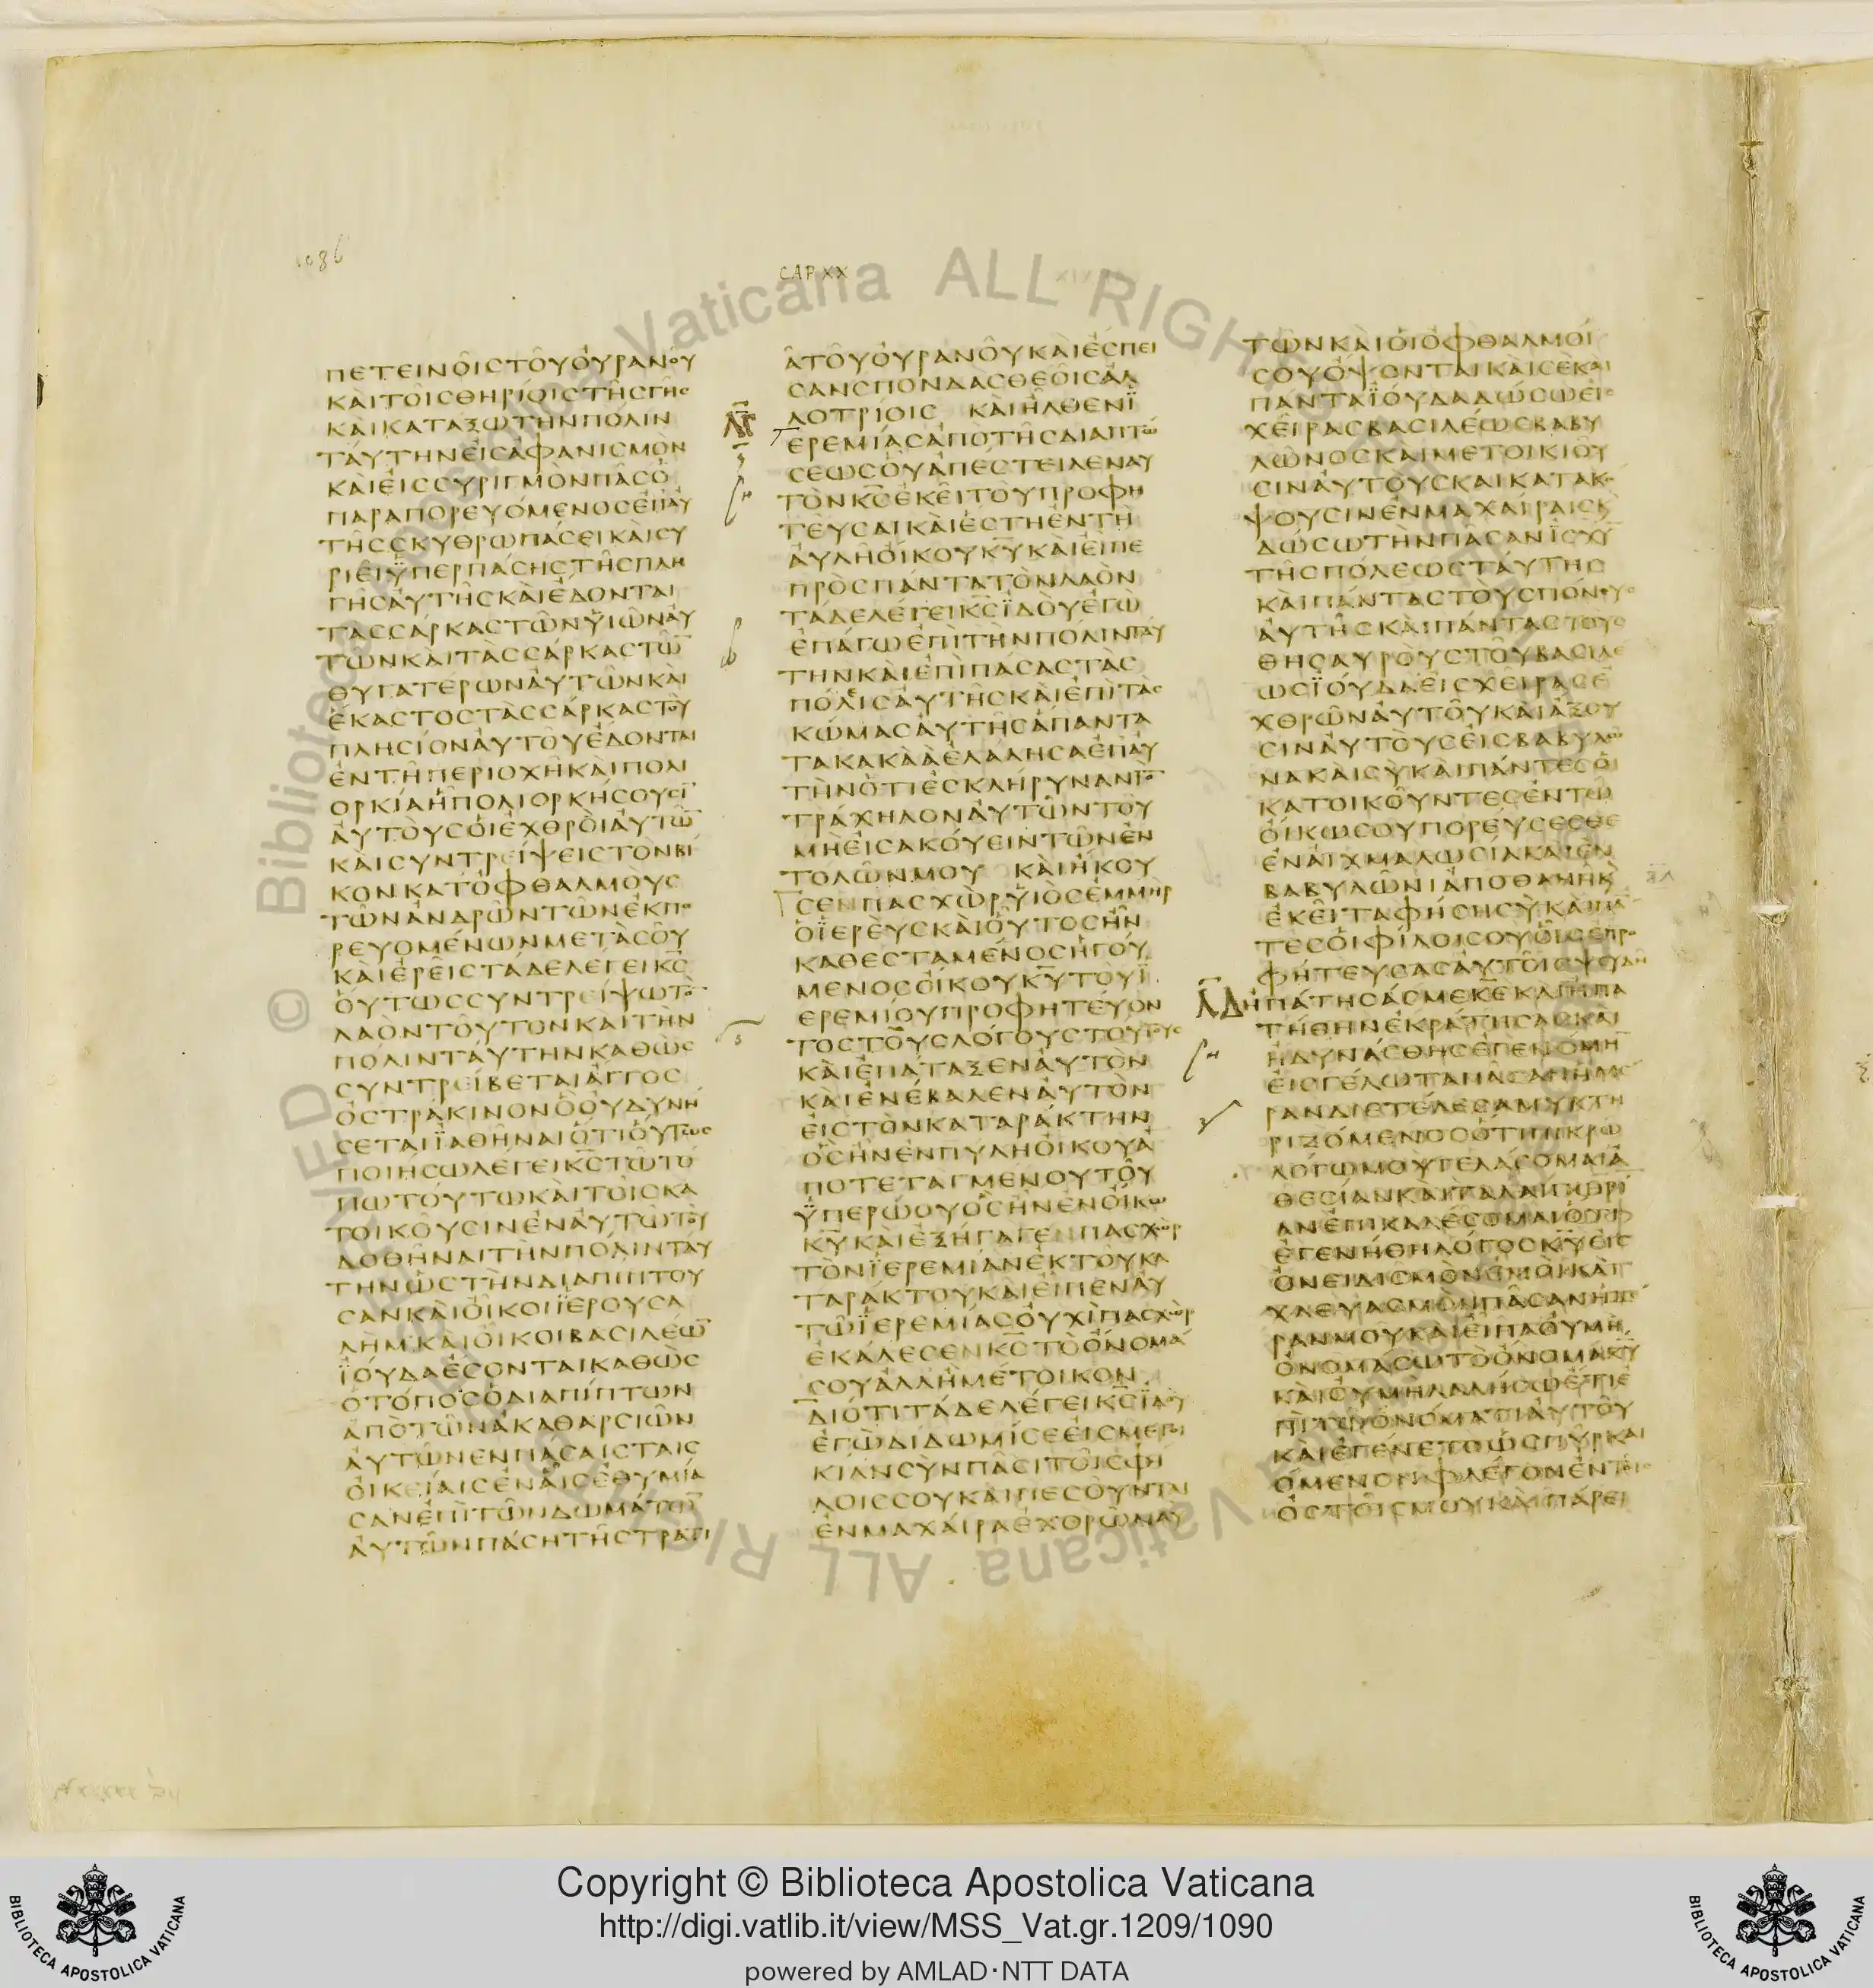 1086
CAP XX
πετεινοῖς τοῦ οὐρανοῦ
καὶ τοῖς θηρίοις τῆς γῆς
καὶ κατάξω τὴν πόλιν
ταύτην εἰς ἀφανισμὸν
καὶ εἰς συριγμόν πᾶς ὁ
παραπορευόμενος ἐπ αὐ
τῆς σκυθρωπάσει καὶ συ
ριεῖ ϋπερ πάσης τῆς πλη
γῆς αὐτῆς καὶ ἔδονται
τὰς σάρκας τῶν ϋἱῶν αὐ
τῶν καὶ τὰς σάρκας τῶ̅
θυγατέρων αὐτῶν καὶ
ἕκαστος τὰς σάρκας τοῦ
πλησίον αὐτοῦ ἔδονται
ἐν τῇ περιοχῇ καὶ πολι
ορκίᾳ ᾗ πολιορκήσουσι̅
αὐτοὺς οἱ ἐχθροὶ αὐτῶ̅
καὶ συντρείψεις τὸν βῖ
κον κατ ὀφθαλμοὺς
τῶν ἀνδρῶν τῶν ἐκπο
ρευομένων μετὰ σοῦ
καὶ ἐρεῖς τάδε λέγει κ̅ς̅
οὕτως συντρείψω τὸ̅
λαὸν τοῦτον καὶ τὴν
πόλιν ταύτην καθὼς
συντρείβεται ἄγγος
ὀστράκινον ὃ οὐ δυνή
σεται ϊαθῆναι ὅτι οὕτως
ποιήσω λέγει κ̅ς̅ τῷ τό
πῳ τούτῳ καὶ τοῖς κα
τοικοῦσιν ἐν αὐτῷ τοῦ
δοθῆναι τὴν πόλιν ταύ
την ὡς τὴν διαπίπτου
σαν καὶ οἶκοι ϊερουσα
λὴμ καὶ οἶκοι βασιλέω̅
ϊούδα ἔσονται καθὼς
ὁ τόπος ὁ διαπίπτων
ἀπὸ τῶν ἀκαθαρσιῶν
αὐτῶν ἐν πάσαις ταῖς
οἰκείαις ἐν αἷς ἐθυμία
σαν ἐπὶ τῶν δωμάτων
αὐτῶν πάσῃ τῇ στρατι
ᾷ τοῦ οὐρανοῦ καὶ ἔσπει
σαν σπονδὰς θεοῖς ἀλ
λοτρίοις καὶ ἦλθεν ϊ
ερεμίας ἀπὸ τῆς διαπτώ
σεως οὗ ἀπέστειλεν αὐ
τὸν κ̅ς̅ ἐκεῖ τοῦ προφη
τεῦσαι καὶ ἔστη ἐν τῇ
αὐλῇ οἴκου κ̅υ̅ καὶ εἶπε
πρὸς πάντα τὸν λαὸν
τάδε λέγει κ̅ς̅ ϊδοὺ ἐγὼ
ἐπάγω ἐπὶ τὴν πόλιν ταύ
την καὶ ἐπὶ πάσας τὰς
πόλεις αὐτῆς καὶ ἐπὶ τὰς
κώμας αὐτῆς ἅπαντα
τὰ κακὰ ἃ ἐλάλησα ἐπ αὐ
τὴν ὅτι ἐσκλήρυναν τὸ̅
τράχηλον αὐτῶν τοῦ
μὴ εἰσακούειν τῶν ἐν
τολῶν μου καὶ ἤκου
σεν πασχὼρ ϋἱὸς ἐμμὴρ
ὁ ϊερεὺς καὶ οὗτος ἦν
καθεσταμένος ἡγού
μενος οἴκου κ̅υ̅ τοῦ ϊ
ερεμίου προφητεύον
τος τοὺς λόγους τούτους
καὶ ἐπάταξεν αὐτὸν
καὶ ἐνέβαλεν αὐτὸν
εἰς τὸν καταράκτην
ὃς ἦν ἐν πύλῃ οἴκου ἀ
ποτεταγμένου τοῦ
ϋπερῴου ὃς ἦν ἐν οἴκῳ
κ̅υ̅ καὶ ἐξήγαγεν πασχὼρ
τὸν ϊερεμίαν ἐκ τοῦ κα
ταράκτου καὶ εἶπεν αὐ
τῷ ϊερεμίας οὐχὶ πασχὼρ
ἐκάλεσεν κ̅ς̅ τὸ ὄνομά
σου ἀλλ ἢ μέτοικον
διότι τάδε λέγει κ̅ς̅ ϊδοὺ
ἐγὼ δίδωμί σε εἰς μετοι
κίαν σὺν πᾶσι τοῖς φί
λοις σου καὶ πεσοῦνται
ἐν μαχαίρᾳ ἐχθρῶν αὐ
τῶν καὶ οἱ ὀφθαλμοί
σου ὄψονται καὶ σὲ καὶ
πάντα ϊούδα δώσω εἰς
χεῖρας βασιλέως βαβυ
λῶνος καὶ μετοικιοῦ
σιν αὐτοὺς καὶ κατακό
ψουσιν ἐν μαχαίραις κ
δώσω τὴν πᾶσαν ἰσχὺ̅
τῆς πόλεως ταύτης
καὶ πάντας τοὺς πόνους
αὐτῆς καὶ πάντας τοὺς
θησαυροὺς τοῦ βασιλέ
ως ϊούδα εἰς χεῖρας ἐ
χθρῶν αὐτοῦ καὶ ἄξου
σιν αὐτοὺς εἰς βαβυλῶ
να καὶ σὺ καὶ πάντες οἱ
κατοικοῦντες ἐν τῷ
οἴκῳ σου πορεύσεσθε
ἐν αἰχμαλωσίᾳ καὶ ἐν
βαβυλῶνι ἀποθανῇ κ
ἐκεῖ ταφήσῃ σὺ καὶ πά̅
τες οἱ φίλοι σου οἷς ἐπρο
φήτευσας αὐτοῖς ψευδῆ
ἠπάτησάς με κ̅ε̅ καὶ ἠπα
τήθην ἐκράτησας καὶ
ἠδυνάσθης ἐγενόμη̅
εἰς γέλωτα πᾶσαν ἡμέ
ραν διετέλεσα μυκτη
ριζόμενος ὅτι πικρῷ
λόγῳ μου γελάσομαι ἀ
θεσίαν καὶ ταλαιπωρί
αν ἐπικαλέσομαι ὅτι
ἐγενήθη λόγος κ̅υ̅ εἰς
ὀνειδισμὸν ἐμοὶ καὶ
χλευασμὸν πᾶσαν ἡμέ
ραν μου καὶ εἶπα οὐ μὴ
ὀνομάσω τὸ ὄνομα κ̅υ̅
καὶ οὐ μὴ λαλήσω ἔτι ἐ
πὶ τῷ ὀνόματι αὐτοῦ
καὶ ἐγένετο ὡς πῦρ και
όμενον φλέγον ἐν τοῖς
ὀστοῖς μου καὶ πάρει
Copyright © Biblioteca Apostolica Vaticana
http://digi.vatlib.it/view/MSS_Vat.gr.1209/1090
powered by AMLAD·NTT DATA
BIBLIOTECA APOSTOLICA VATICANA
BIBLIOTECA APOSTOLICA VATICANA